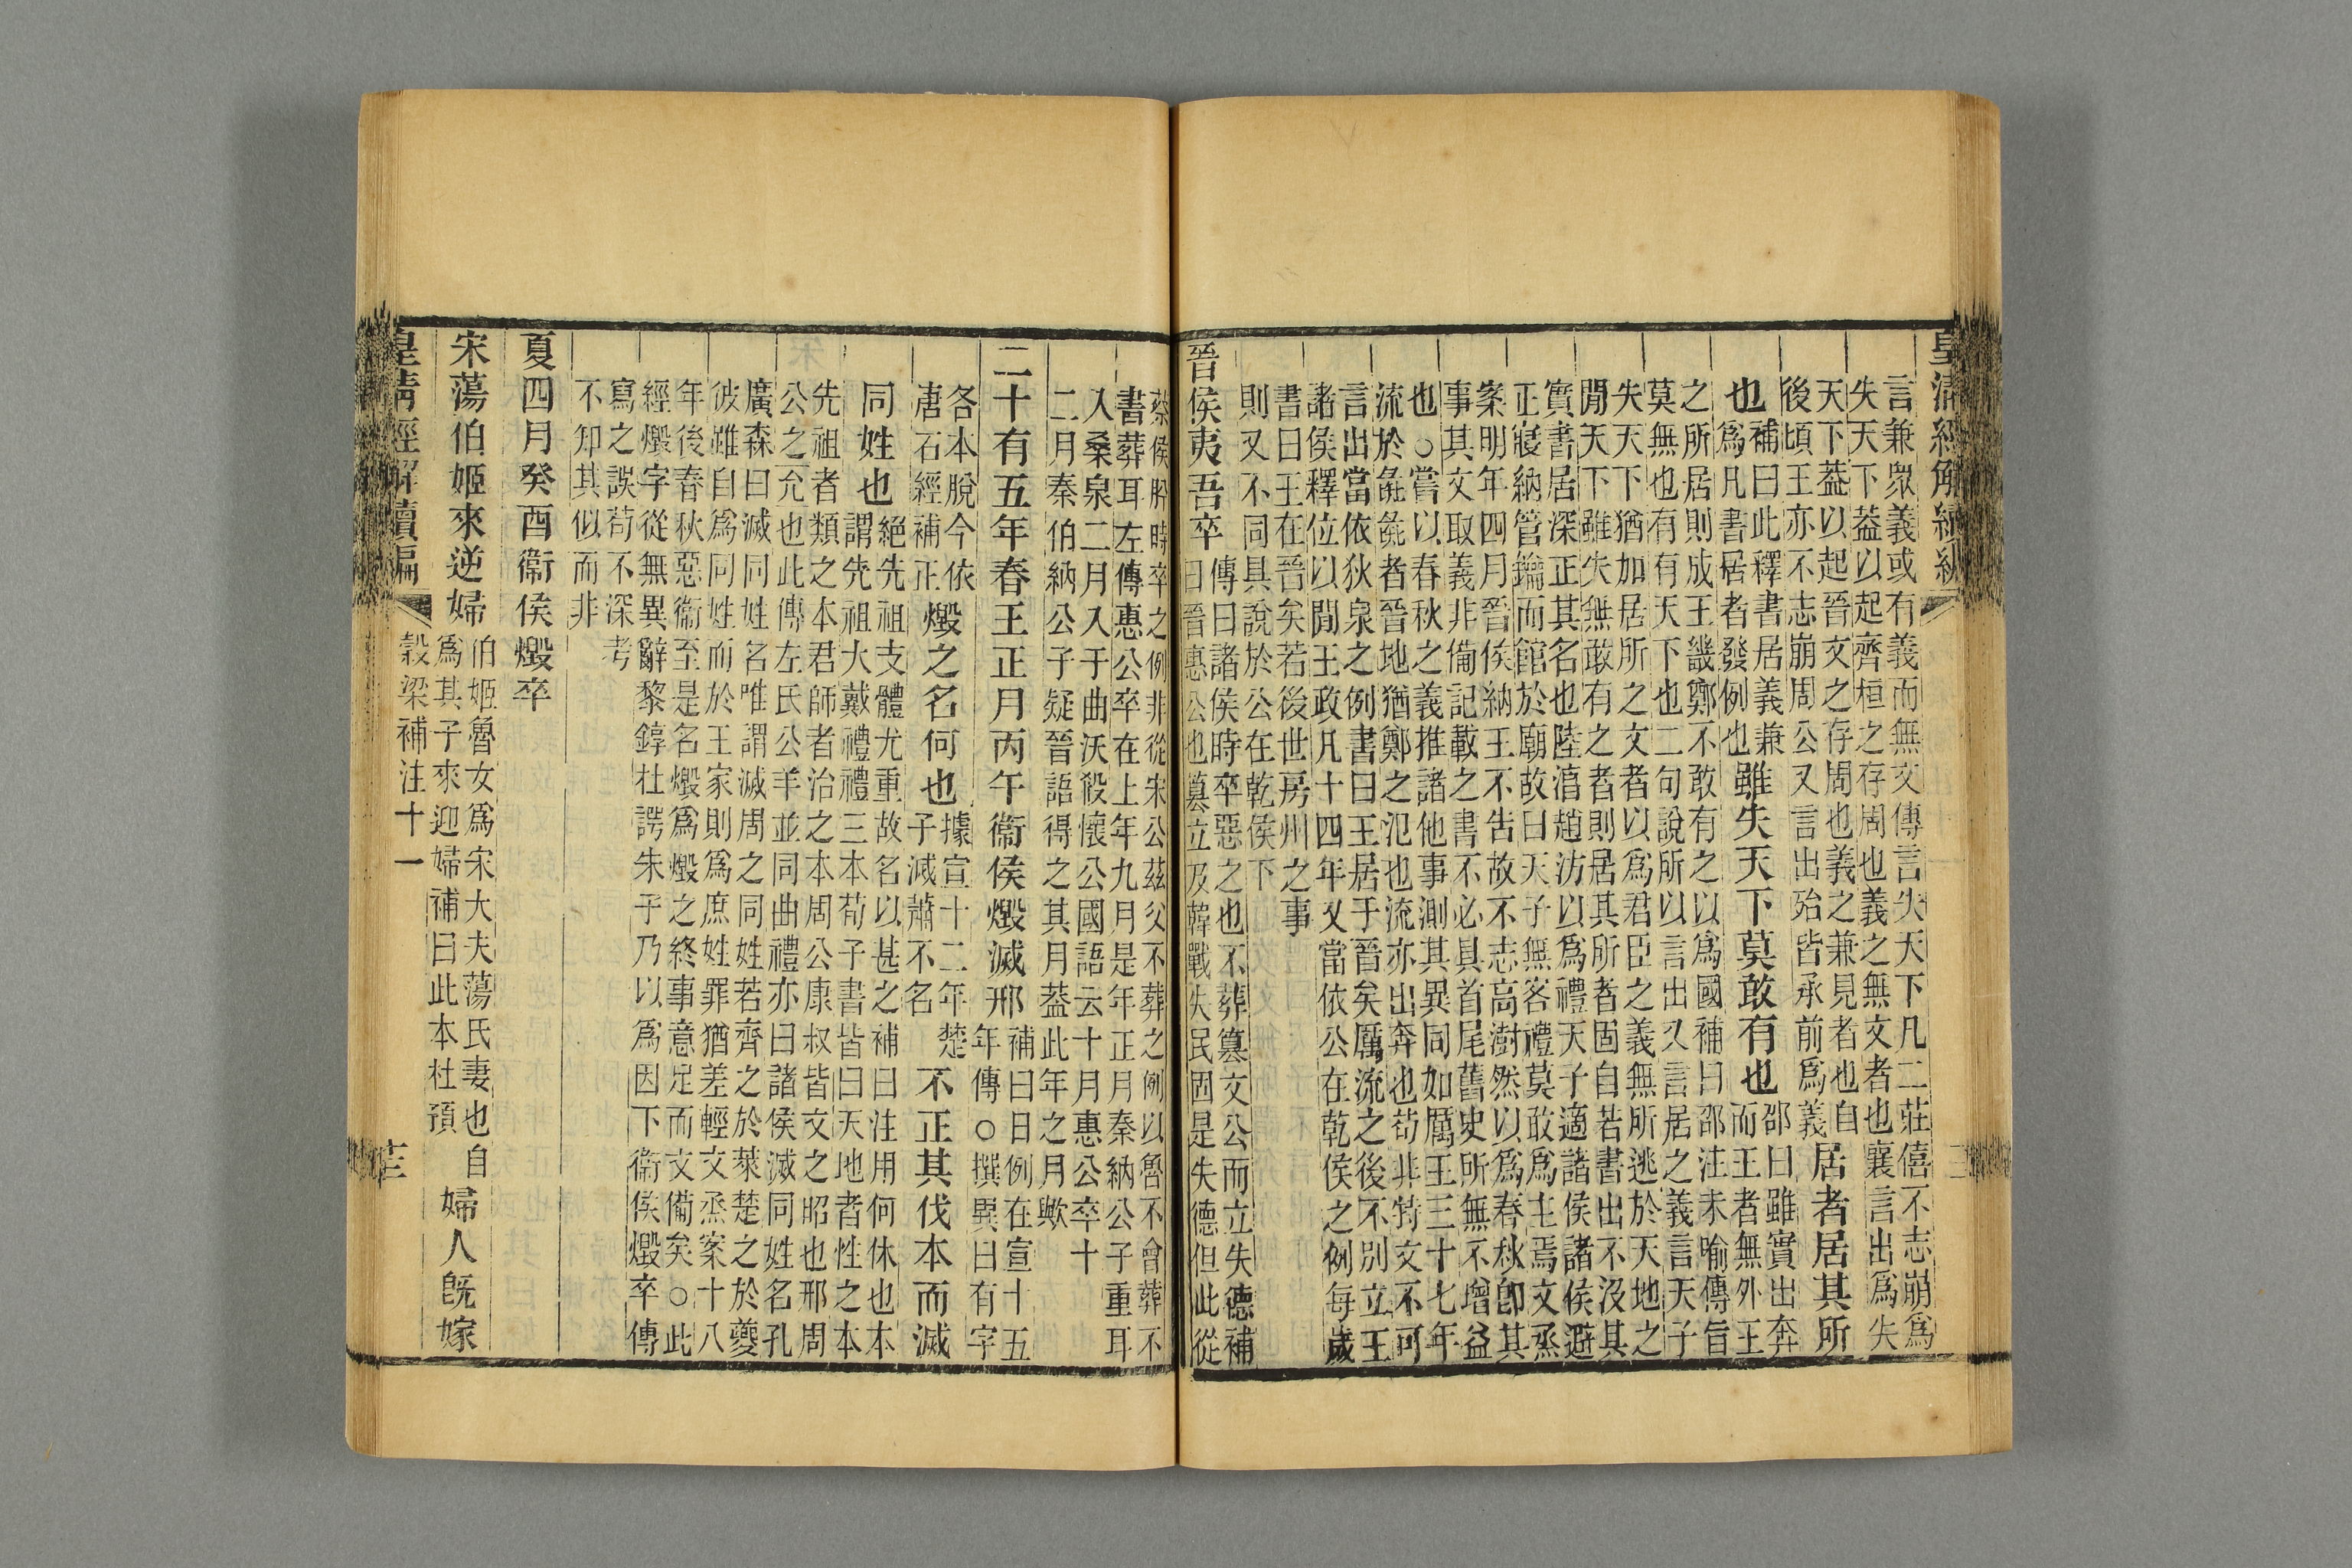 皇清經解續編
言兼眾義或有義而無文傳言失天下凡二莊僖不志崩爲
失天下葢以起齊桓之存周也義之無文者也襄言出爲失
天下葢以起晉文之存周也義之兼見者也自
後頃王亦不志崩周公又言出殆皆承前爲義
居者居其所
也
補曰此釋書居義兼
爲凡書居者發例也
雖失天下莫敢有也
邵曰雖實出奔
而王者無外王
之所居則成王畿鄭不敢有之以爲國補曰邵注未喻傳旨
莫無也有有天下也二句說所以言出又言居之義言天子
失天下猶加居所之文者以爲君臣之義無所逃於天地之
閒天下雖失無敢有之者則居其所者固自若書出不沒其
實書居深正其名也陸淳趙汸以爲禮天子適諸侯諸侯避
正寢納管鑰而館於廟故曰天子無客禮莫敢爲主焉文烝
案明年四月晉侯納王不告故不志高澍然以爲春秋卽其
事其文取義非備記載之書不必具首尾舊史所無不增益
也○嘗以春秋之義推諸他事測其異同如厲王三十七年
流於彘彘者晉地猶鄭之氾也流亦出奔也苟非特文不可
言出當依狄泉之例書曰王居于晉矣厲流之後不別立王
諸侯釋位以閒王政凡十四年又當依公在乾侯之例每歲
書曰王在晉矣若後世房州之事
則又不同具說於公在乾侯下
晉侯夷吾卒
傳曰諸侯時卒惡之也不葬篡文公而立失德補
曰晉惠公也篡立及韓戰失民固是失德但此從
蔡侯肸時卒之例非從宋公茲父不葬之例以魯不會葬不
書葬耳左傳惠公卒在上年九月是年正月秦納公子重耳
入桑泉二月入于曲沃殺懷公國語云十月惠公卒十
二月秦伯納公子疑晉語得之其月葢此年之月歟
二十有五年春王正月丙午衞侯燬滅邢
補曰日例在宣十五
年傳○撰異曰有字
各本脫今依
唐石經補正
燬之名何也
據宣十二年楚
子滅蕭不名
不正其伐本而滅
同姓也
絕先祖支體尤重故名以甚之補曰注用何休也本
謂先祖大戴禮禮三本荀子書皆曰天地者性之本
先祖者類之本君師者治之本周公康叔皆文之昭也邢周
公之允也此傳左氏公羊並同曲禮亦曰諸侯滅同姓名孔
廣森曰滅同姓名唯謂滅周之同姓若齊之於萊楚之於夔
彼雖自爲同姓而於王家則爲庶姓罪猶差輕文烝案十八
年後春秋惡衞至是名燬爲燬之終事意足而文備矣○此
經燬字從無異辭黎錞杜諤朱子乃以爲因下衞侯燬卒傳
寫之誤苟不深考
不知其似而非
夏四月癸酉衞侯燬卒
宋蕩伯姬來逆婦
伯姬魯女爲宋大夫蕩氏妻也自
爲其子來迎婦補曰此本杜預
婦人既嫁
皇清經解續編
穀梁補注十一